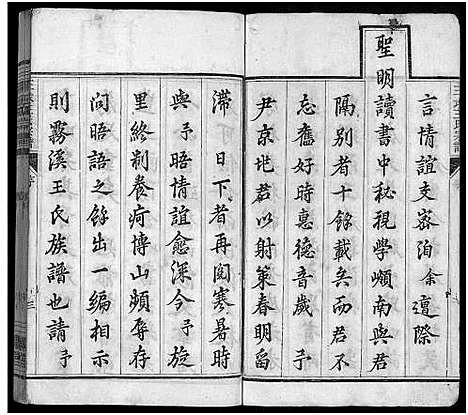 言情誼支密洎余遭際
聖明讀書中秘視學嶺南與君
隔別者十餘載矣而君不
忘舊好時惠德音歲予
尹京兆君以射策春明留
滯日下者再閱寒暑時
與予晤情誼愈深今予旋
里終制養疴博山頻辱存
問晤語之餘出一編相示
則霧溪王氏族譜也請予